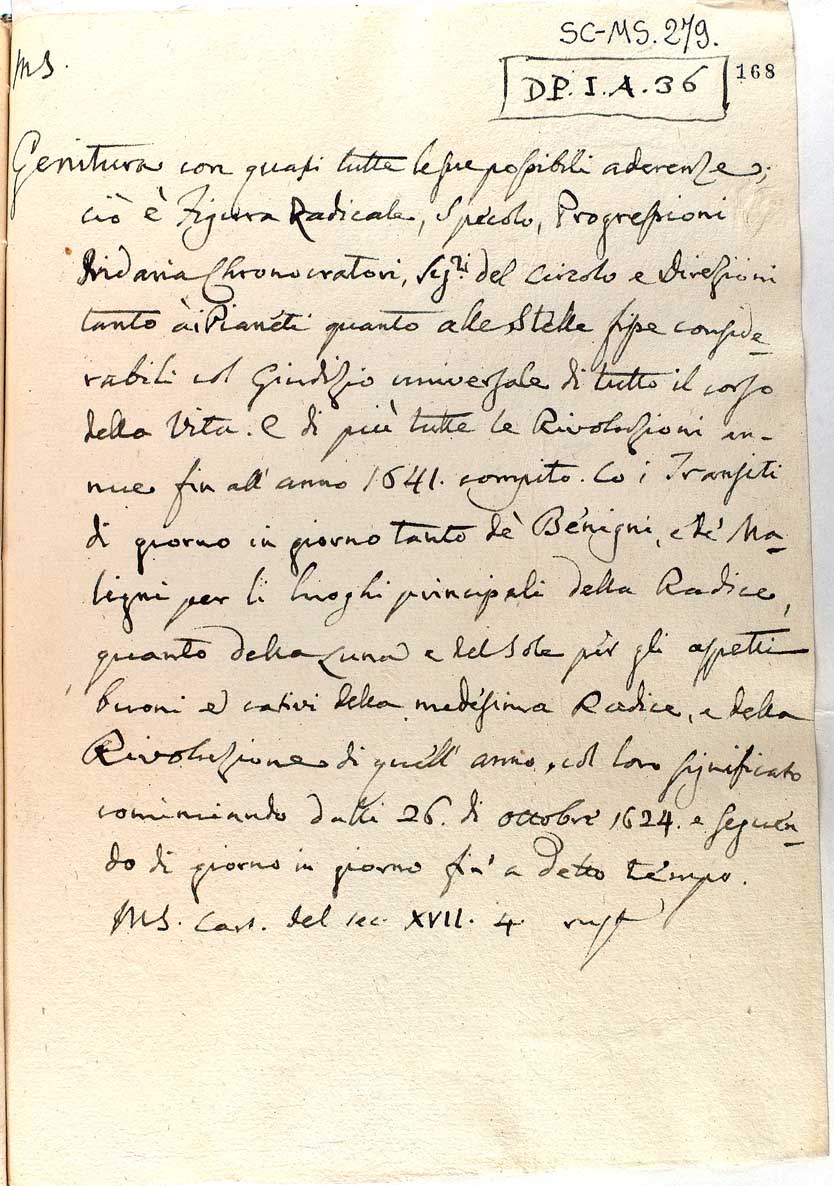 SC-MS. 279.
MS.
DP. I. A. 36
168
Genitura con quasi tutte le sue possibili aderenze,
ciò è Figura Radicale, Specolo, Progressioni
Fridaria Chronocratori, Sig.ri del Circolo e Direzioni
tanto à i Pianeti quanto alle Stelle fisse conside-
rabili col Giudizio universale di tutto il corso
della Vita. E di più tutte le Rivoluzioni an-
nue fin all' anno 1641. compito. Co i Transiti
di giorno in giorno tanto dè Benigni, e de' Ma-
ligni per li luoghi principali della Radice,
quanto della Luna e del Sole per gli aspetti
buoni e cativi della medesima Radice, e della
Rivoluzione di quell' anno, col loro significato
cominciando dalli 26. di ottobre 1624. e seguen-
do di giorno in giorno fin' a detto tempo.
MS. Cart. del sec. XVII. 4.